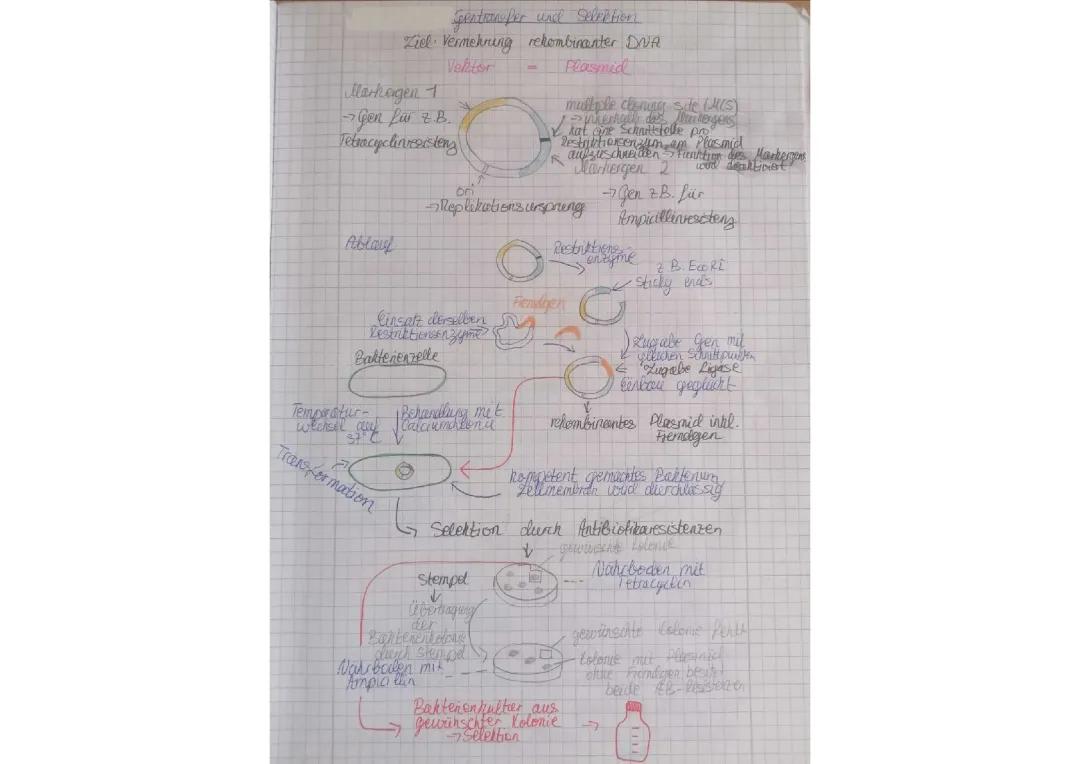 Gentransfer und Selektion
Ziel: Vermehrung rekombinanter DNA
Vektor = Plasmid
Markergen 1
→ Gen für z.B.
Tetracyclinresistenz
multiple cloning site (MCS)
→ innerhalb des Markergens
hat eine Schnittstelle pro
Restriktionsenzym, um Plasmid
aufzuschneiden → Funktion des Markergens
wird deaktiviert
Markergen 2
→ Gen z.B. für
Ampicillinresistenz
ori
→ Replikationsursprung
Ablauf
Restriktions-
enzyme
z.B. EcoRI
sticky ends
Fremdgen
Einsatz derselben
Restriktionsenzyme
Zugabe Gen mit
gleichen Schnittpunkten
Zugabe Ligase
Einbau geglückt
Bakterienzelle
rekombinantes Plasmid inkl.
Fremdgen
Temperatur-
wechsel auf
37°C
Behandlung mit
Calciumchlorid
Transformation
kompetent gemachtes Bakterium
Zellmembran wird durchlässig
Selektion durch Antibiotikaresistenzen
gewünschte Kolonie
Nährboden mit
Tetracyclin
Stempel
Übertragung
der
Bakterienkolonie
durch Stempel
gewünschte Kolonie fehlt
Kolonie mit Plasmid
ohne Fremdgen besitzt
beide AB-Resistenzen
Nährboden mit
Ampicillin
Bakterienkultur aus
gewünschter Kolonie
→ Selektion